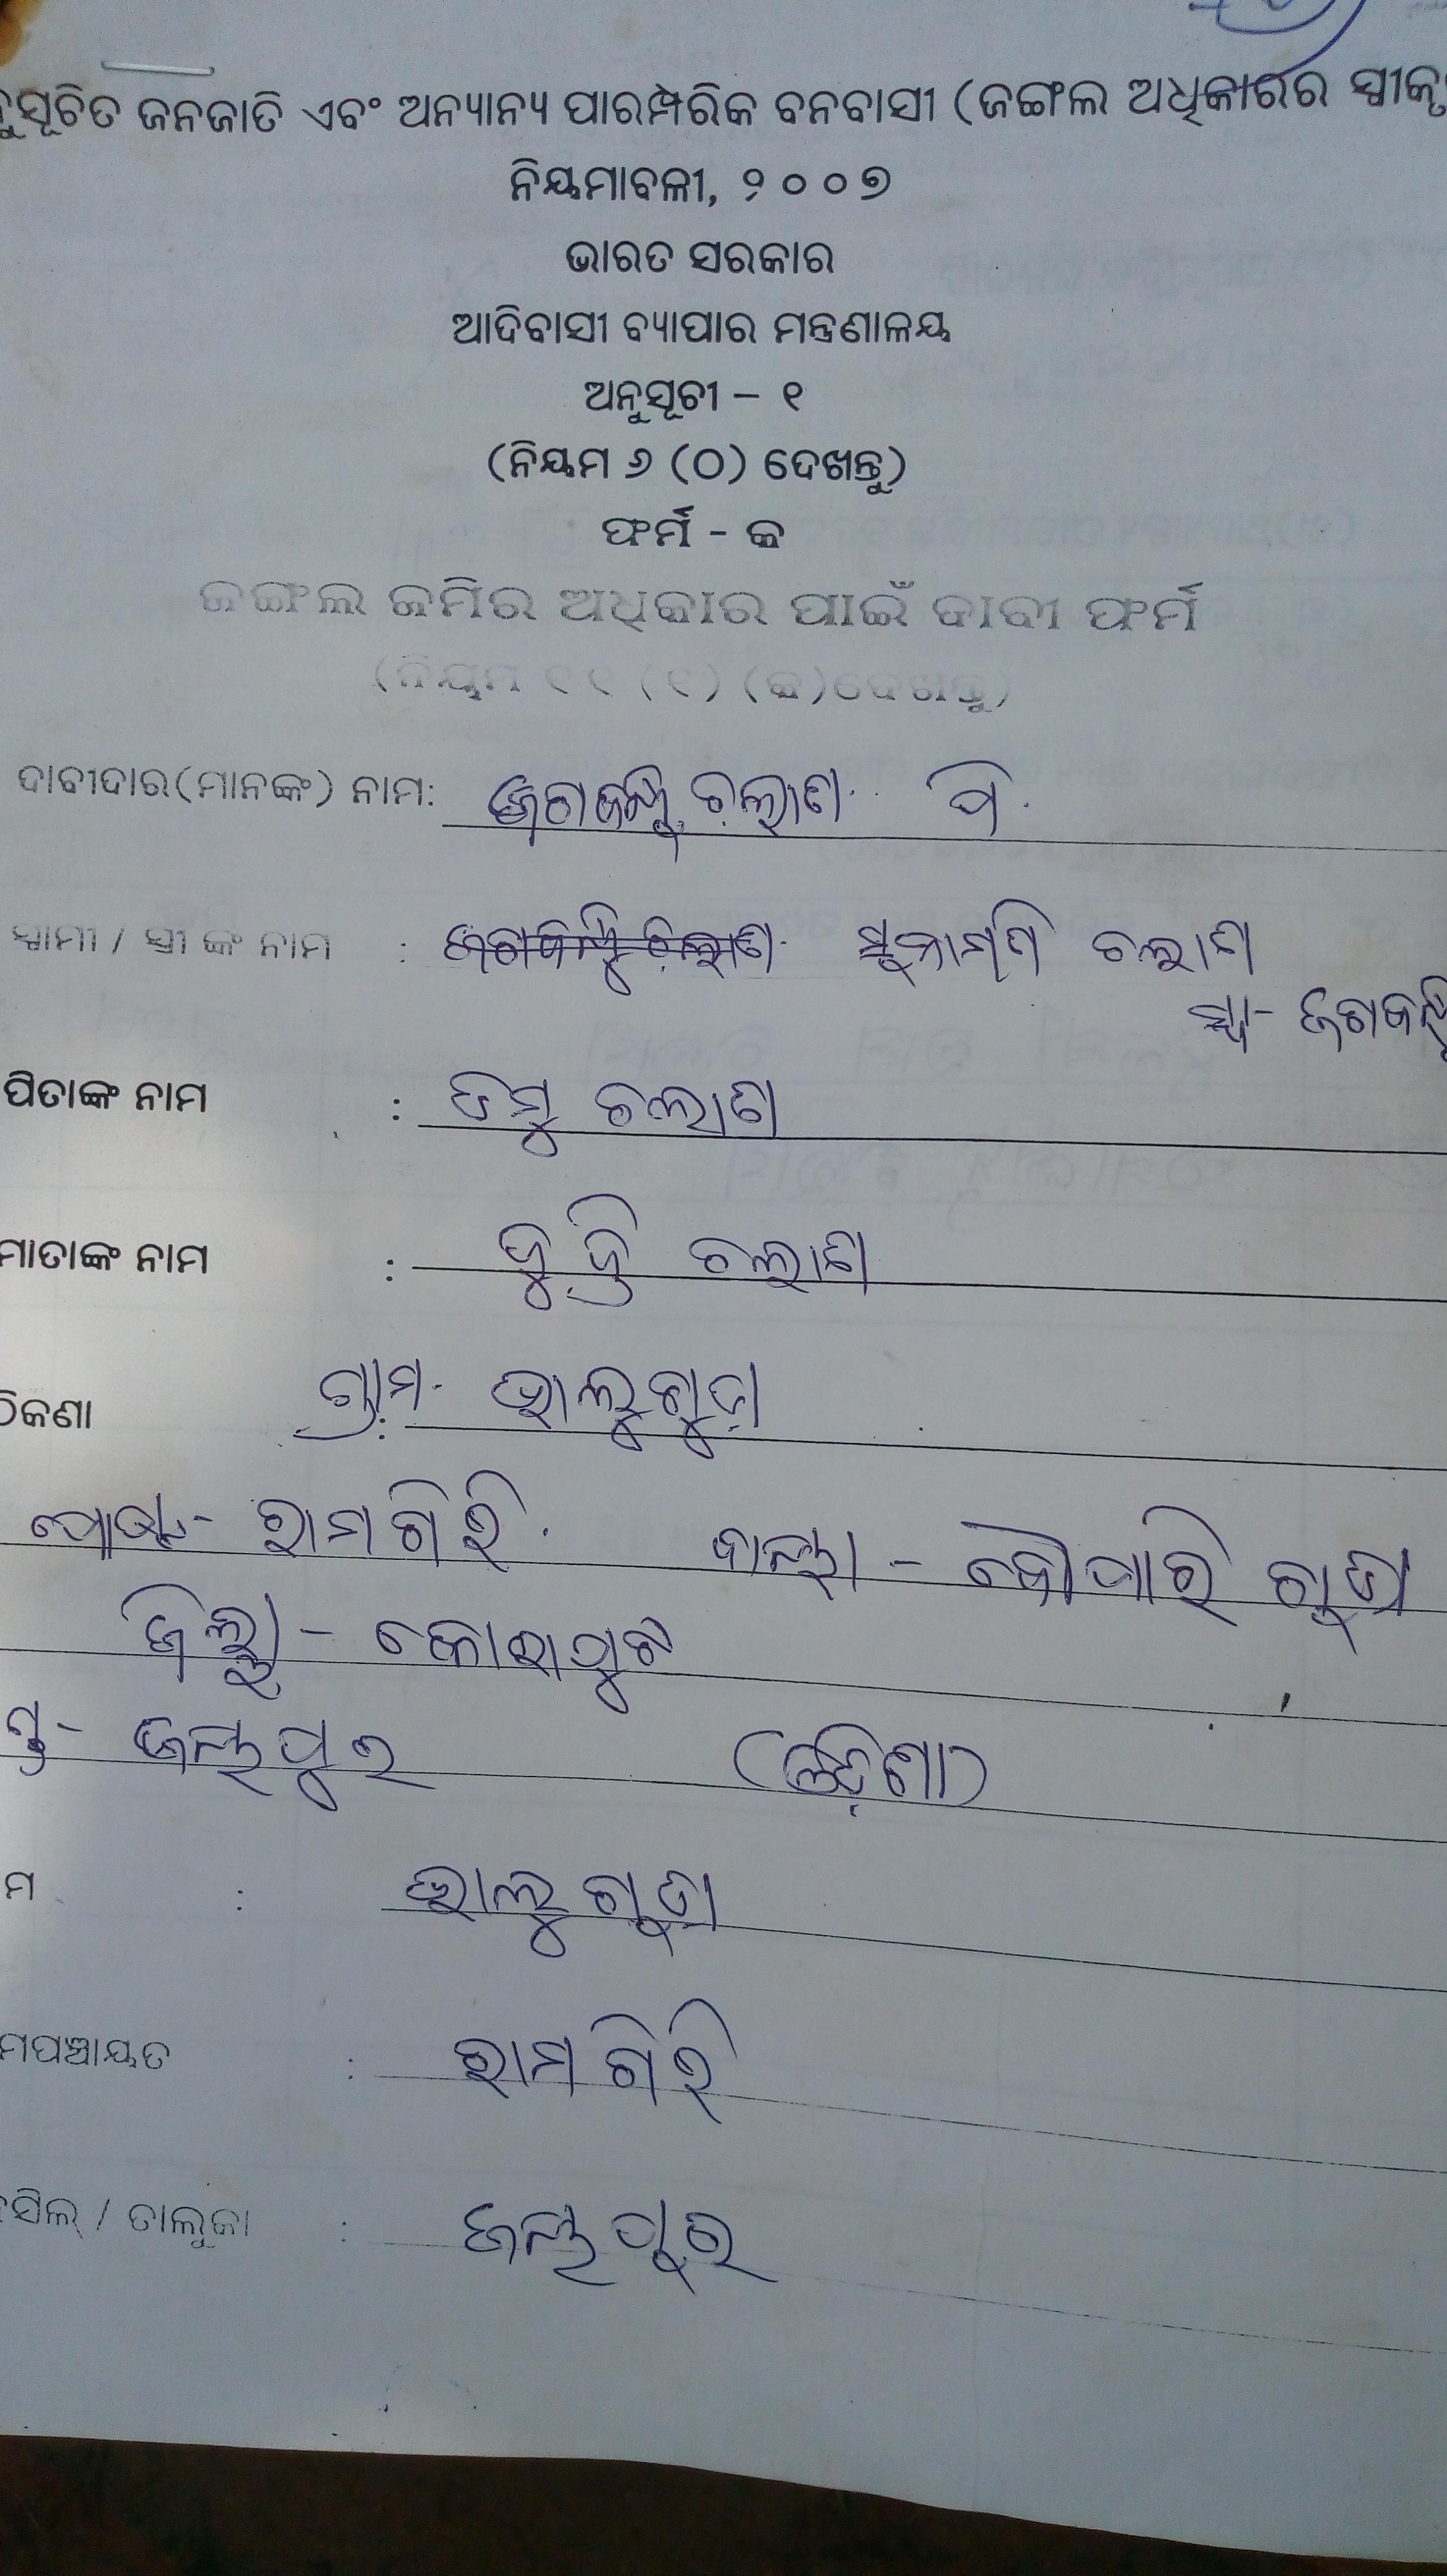 ନୁସୂଚିତ ଜନଜାତି ଏବଂ ଅନ୍ୟାନ୍ୟ ପାରମ୍ପରିକ ବନବାସୀ (ଜଙ୍ଗଲ ଅଧିକାରର ସ୍ୱୀକୃ
ନିୟମାବଳୀ, ୨୦୦୭
ଭାରତ ସରକାର
ଆଦିବାସୀ ବ୍ୟାପାର ମନ୍ତ୍ରଣାଳୟ
ଅନୁସୂଚୀ – ୧
(ନିୟମ ୬ (୦) ଦେଖନ୍ତୁ)
ଫର୍ମ - କ
ଜଙ୍ଗଲ ଜମିର ଅଧିକାର ପାଇଁ ଦାବୀ ଫର୍ମ
(ନିୟମ ୧୧ (୧) (କ)ଦେଖନ୍ତୁ)
ଦାବୀଦାର(ମାନଙ୍କ) ନାମ: ଜଗବନ୍ଧୁ ଚଲାଣ ପି.
ସ୍ୱାମୀ / ସ୍ତ୍ରୀ ଙ୍କ ନାମ : ଜଗବନ୍ଧୁ ଚଲାଣ ସୁନାମଣି ଚଲାଣ
ସ୍ୱା- ଜଗବନ୍ଧୁ
ପିତାଙ୍କ ନାମ : ଡମୁ ଚଲାଣ
ମାତାଙ୍କ ନାମ : ଚଲାଣ
ଠିକଣା : ଗ୍ରାମ- ଭାଲୁଗୁଡ଼ା
ପୋଷ୍ଟ- ରାମଗିରି. ଥାନା - ବୈପାରିଗୁଡ଼ା
ଜିଲ୍ଲା - କୋରାପୁଟ
ଜୟପୁର (ଓଡ଼ିଶା)
ମ : ଭାଲୁଗୁଡ଼ା
ମପଞ୍ଚାୟତ : ରାମଗିରି
ହସିଲ୍ / ତାଲୁକା : ଜୟପୁର